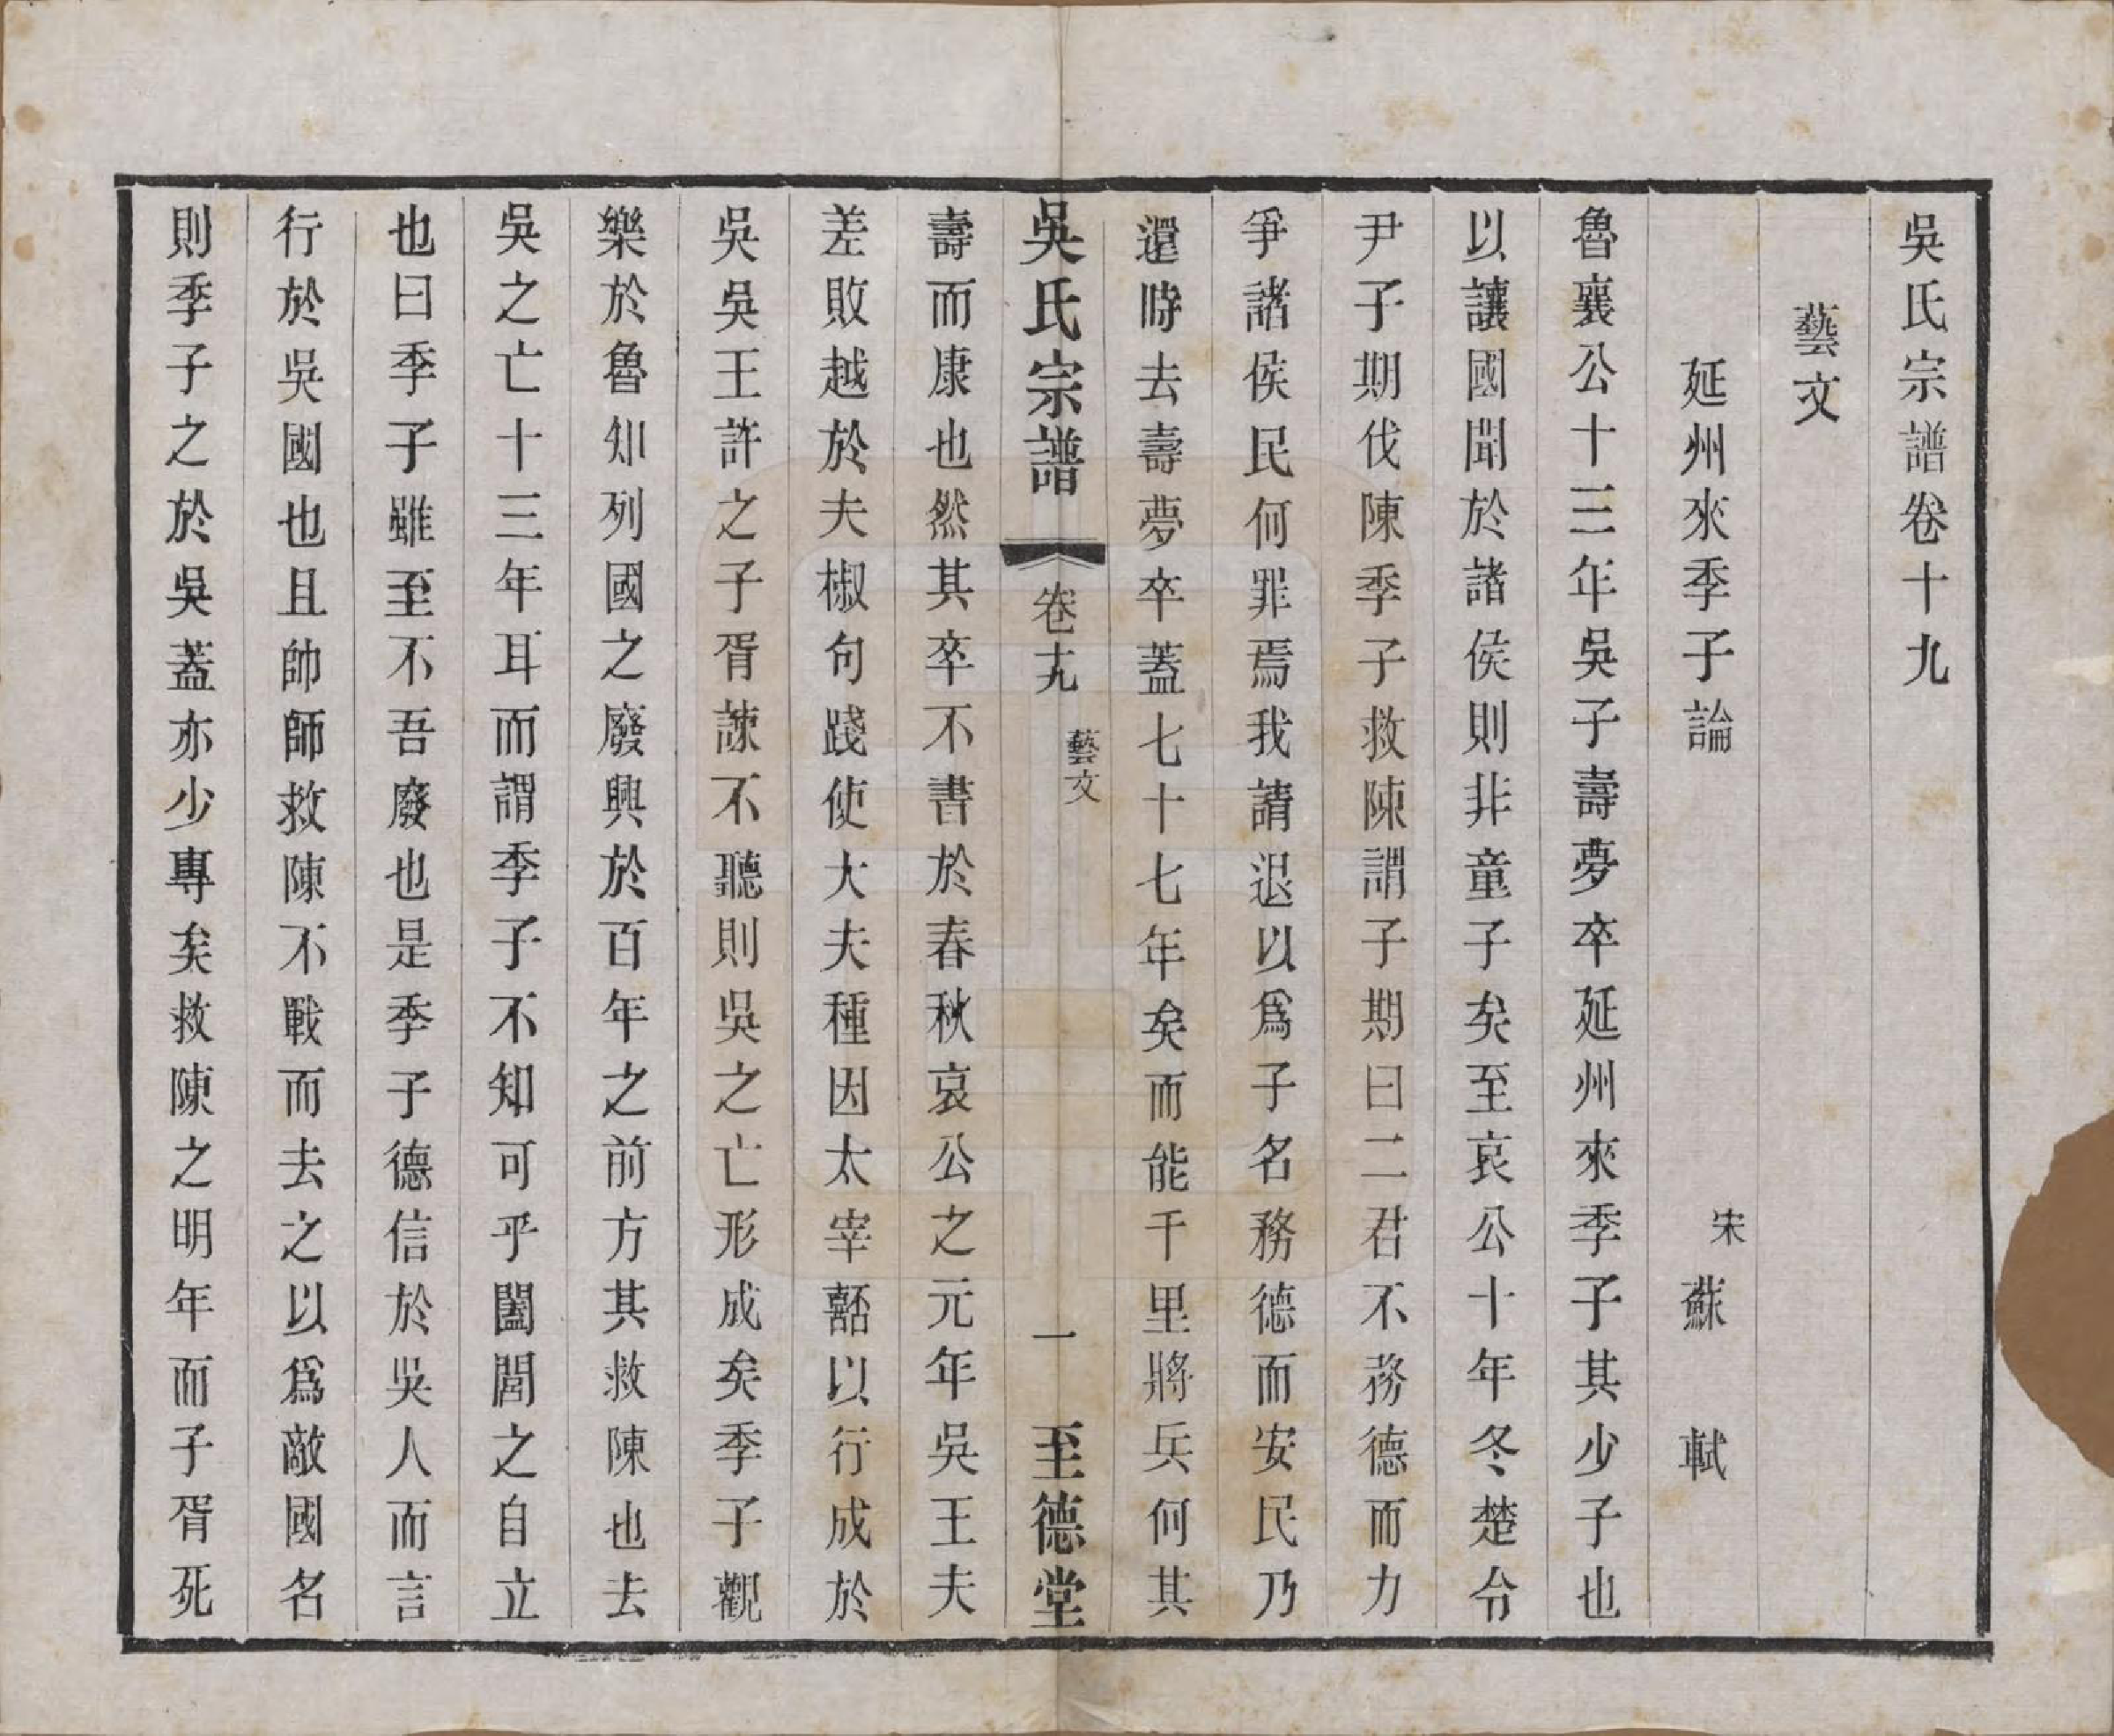 吳氏宗譜卷十九
藝文
延州來季子論 宋 蘇軾
魯襄公十三年吳子壽夢卒延州來季子其少子也
以讓國聞於諸侯則非童子矣至哀公十年冬楚令
尹子期伐陳季子救陳謂子期曰二君不務德而力
爭諸侯民何罪焉我請退以爲子名務德而安民乃
還時去壽夢卒蓋七十七年矣而能千里將兵何其
吳氏宗譜 卷十九 藝文 一 至德堂
壽而康也然其卒不書於春秋哀公之元年吳王夫
差敗越於夫椒句踐使大夫種因太宰嚭以行成於
吳吳王許之子胥諫不聽則吳之亡形成矣季子觀
樂於魯知列國之廢興於百年之前方其救陳也去
吳之亡十三年耳而謂季子不知可乎闔閭之自立
也曰季子雖至不吾廢也是季子德信於吳人而言
行於吳國也且帥師救陳不戰而去之以爲敵國名
則季子之於吳蓋亦少專矣救陳之明年而子胥死